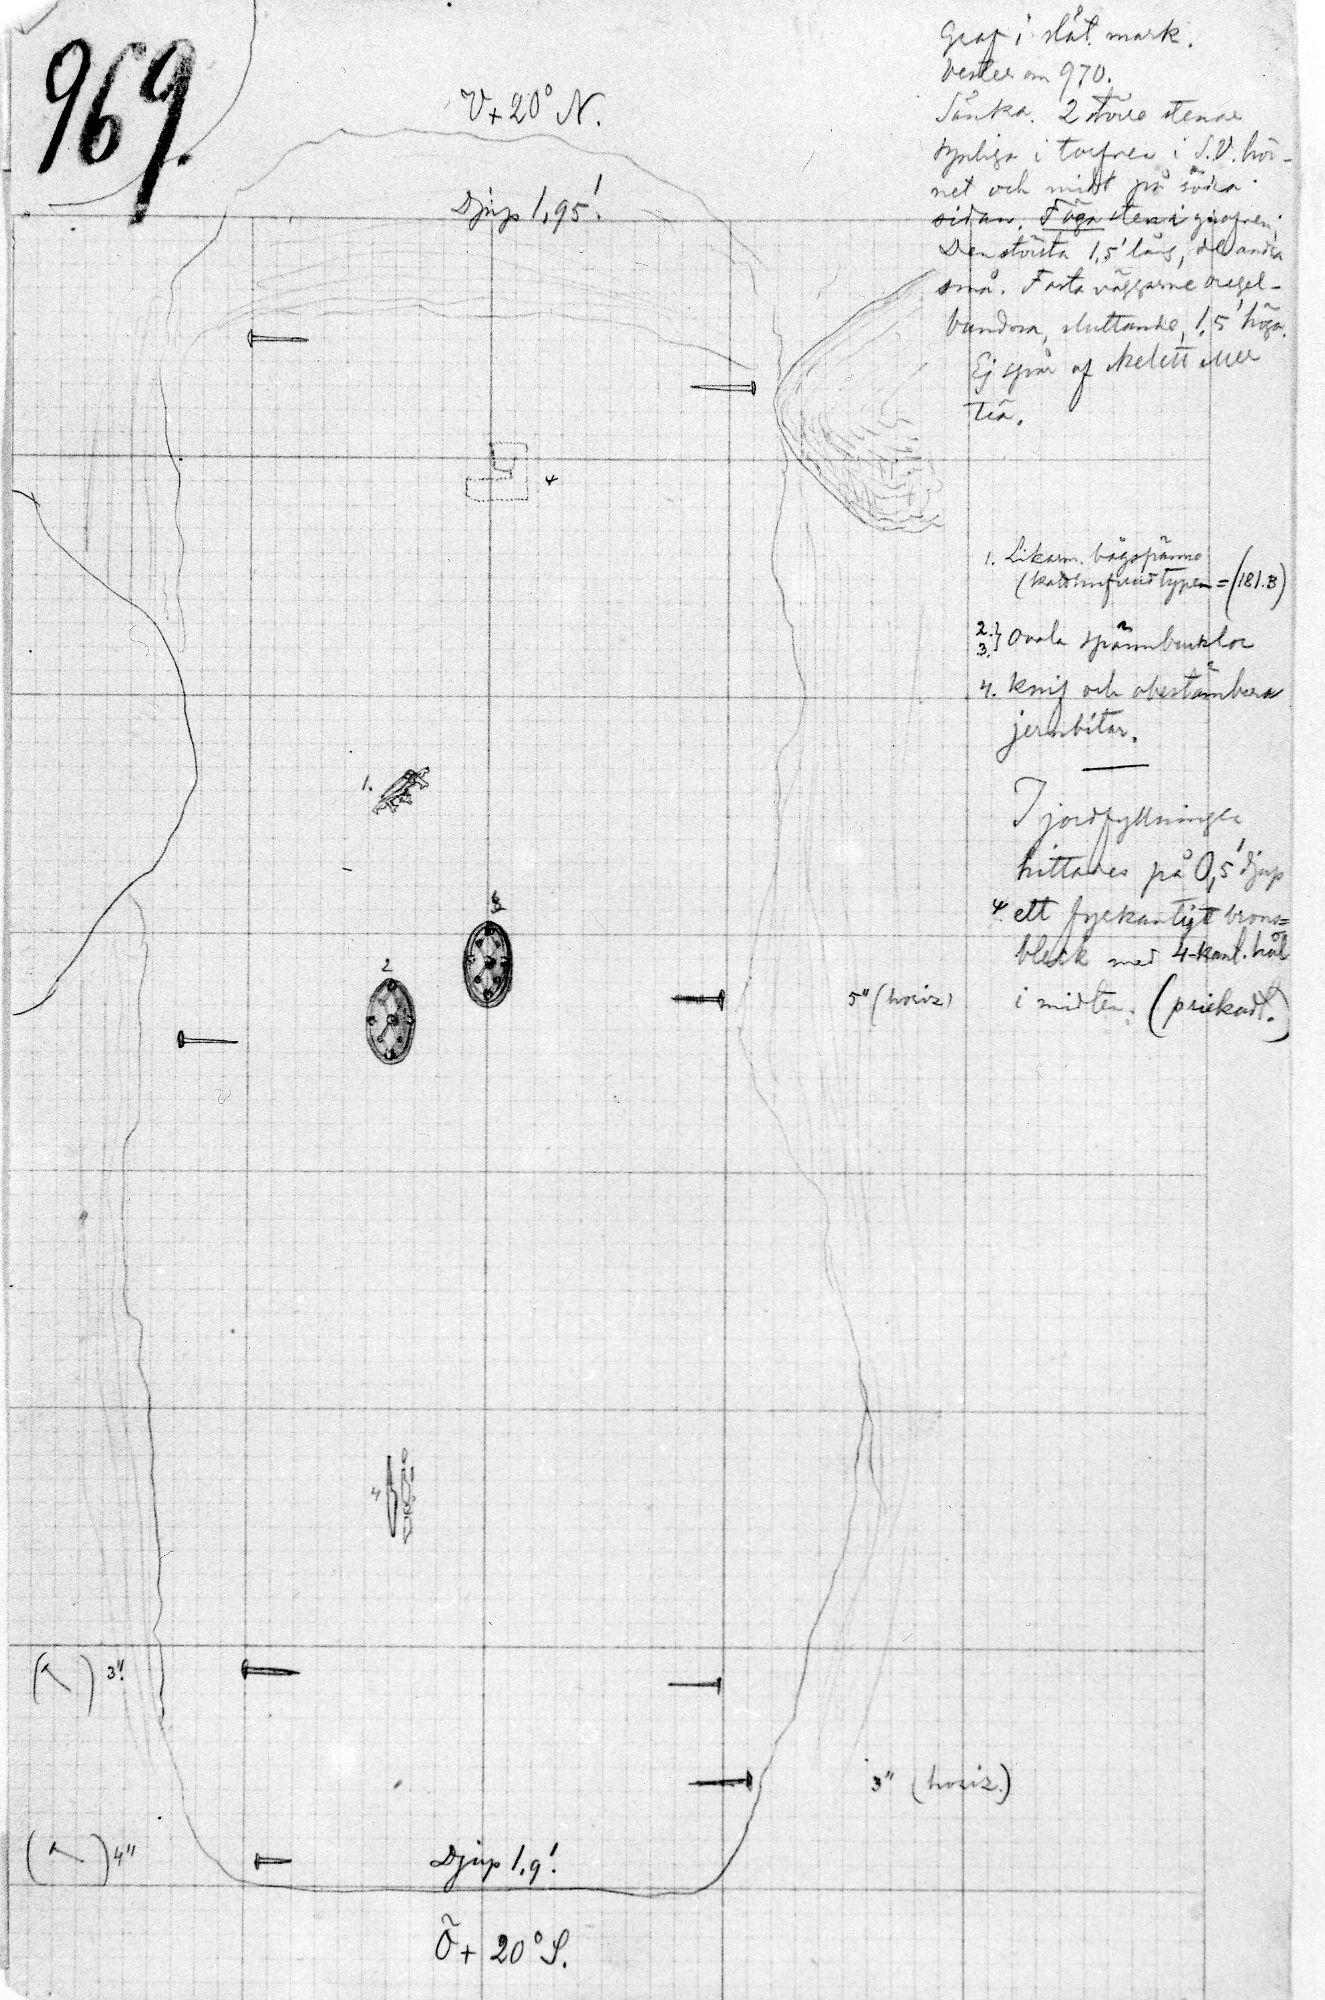 969.
V + 20° N.
Djup 1,95'.
Graf i slät mark.
Vester om 970.
Sänka. 2 större stenar
synliga i torfven i S.V. hör-
net och midt på södra
sidan. Föga sten i grafven;
Den största 1,5' lång, de andra
små. Fasta väggarne oregel-
bundna, sluttande, 1,5' höga.
Ej spår af skelett eller
trä.
4
1. Likarm. bågspänne
= (181.B)
2. } Ovala spännbucklor
3.
4. Knif och obestämbara
jernbitar.
I jordfyllningen
hittades på 0,5' djup
4. ett fyrkantigt brons=
bleck med 4-kant. hål
i midten. (prickadt.)
1.
3
2
5" (horiz)
4
3".
3" (horiz.)
4"
Djup 1,9'.
Ö + 20° S.